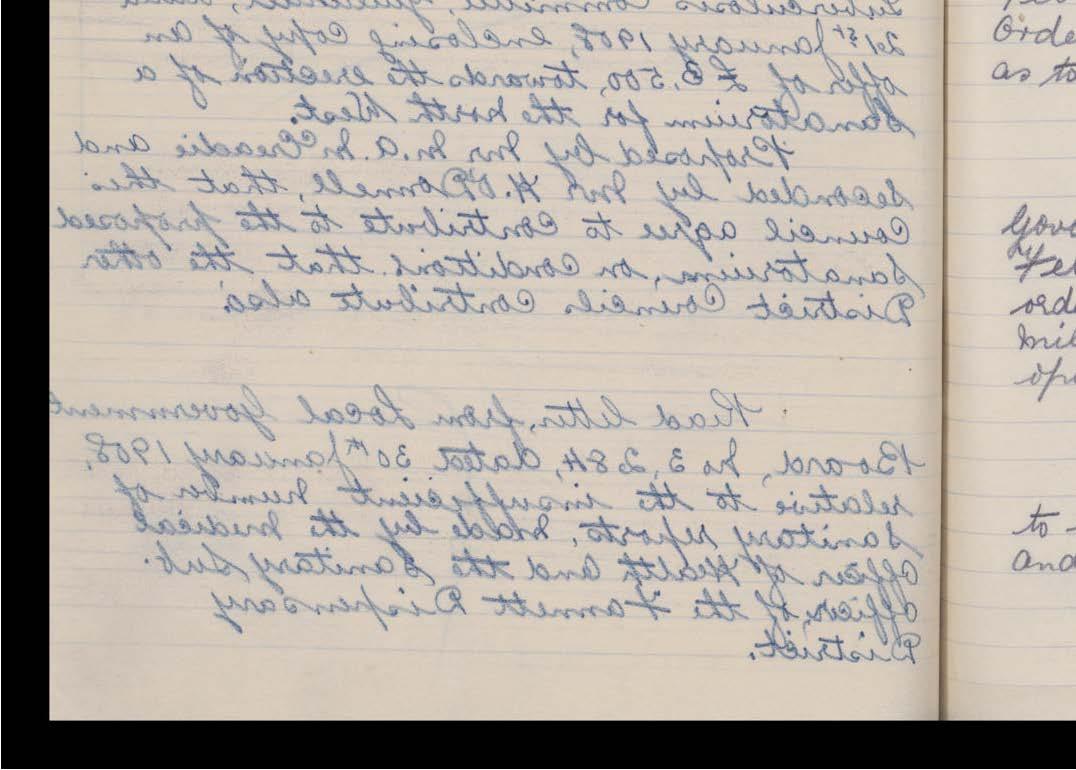 Tuberculosis Committee,
21st January 1908, enclosing copy of an
offer of £3,500, towards the erection of a
Sanatorium for the North West.
Proposed by Mr M.A. McCreadie and
seconded by Mr H. O'Donnell, that this
Council agree to contribute to the proposed
Sanatorium, on conditions that the other
District Councils contribute also.
Read letter, from Local Government
Board, No 3,284, dated 30th January 1908,
relative to the insufficient number of
Sanitary reports, made by the Medical
Officer of Health and the Sanitary Sub.
Officer, of the Fannett Dispensary
District.
Orde
as to
Gove
orde
to
and